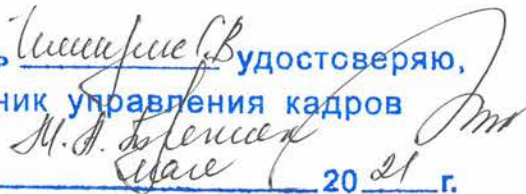 ь С.В удостоверяю,
ник управления кадров
М.А.
мая
20 21 г.